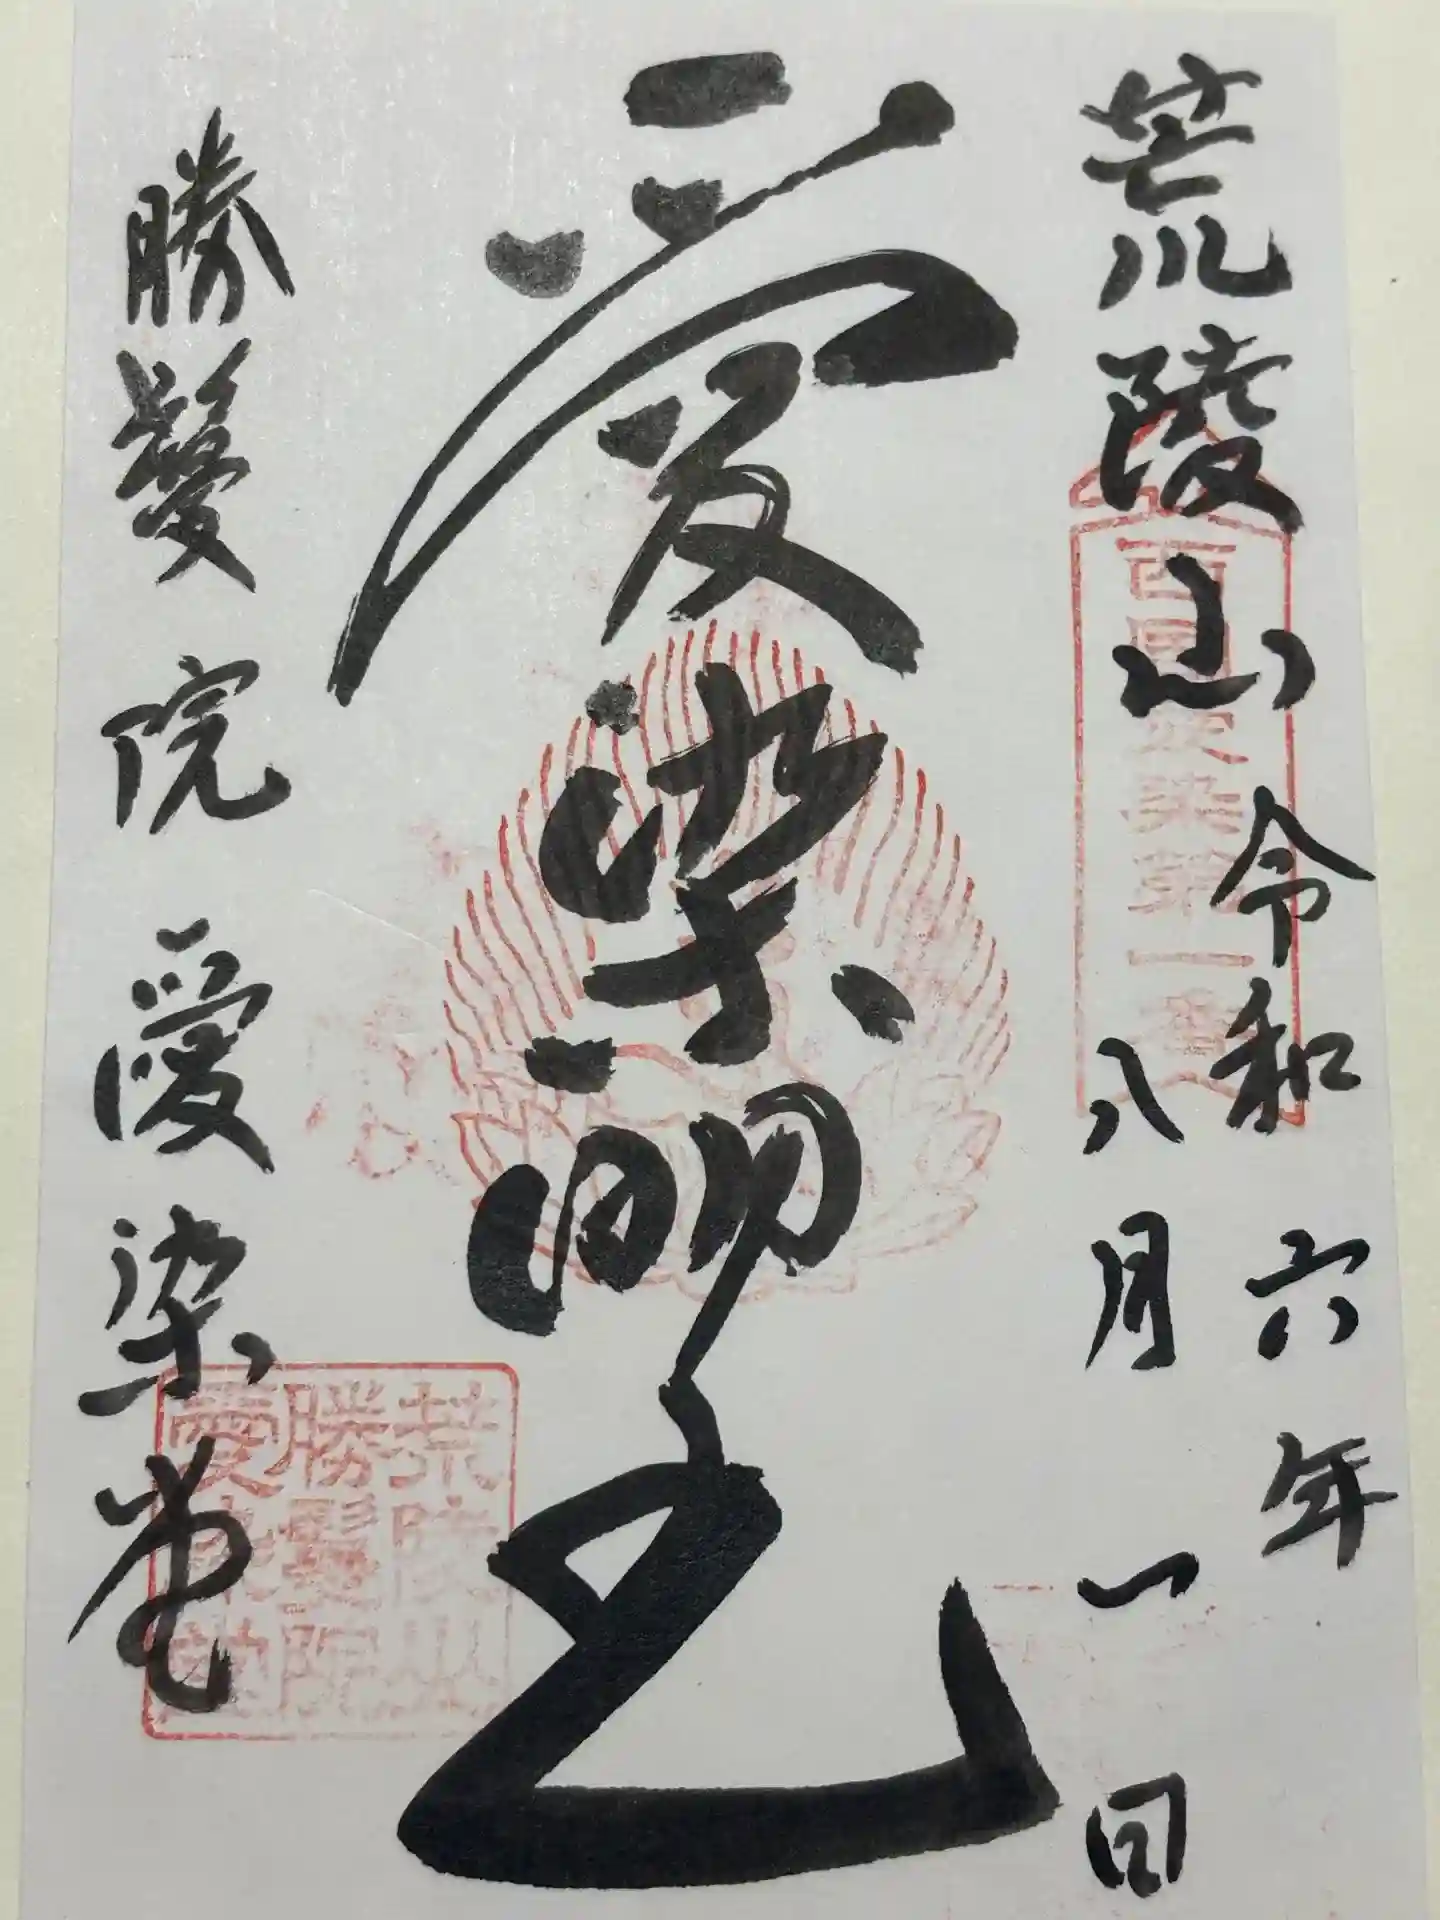 荒陵山
令和六年
八月一日
西国愛染第一番
愛染明王
勝鬘院愛染堂
荒陵山
勝鬘院
愛染堂